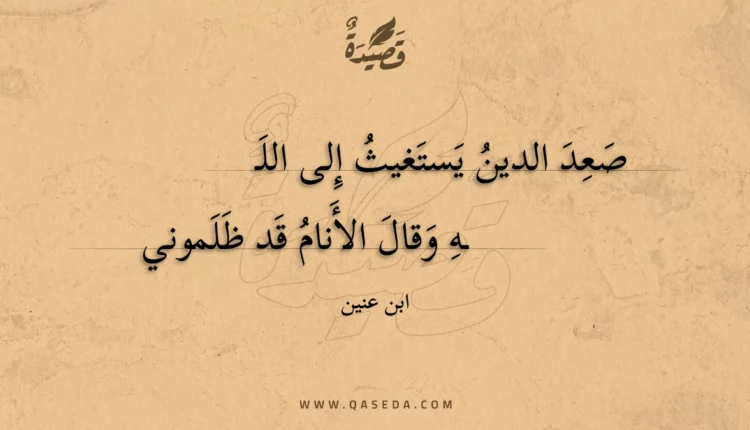 قَصيدَةٌ
صَعِدَ الدينُ يَستَغيثُ إِلى اللَـ
ـهِ وَقالَ الأَنامُ قَد ظَلَموني
ابن عنين
WWW.QASEDA.COM